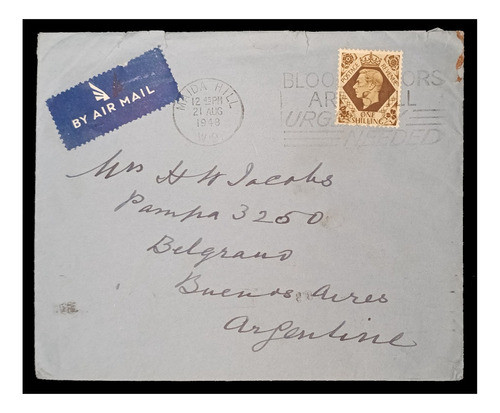 BY AIR MAIL
MAIDA HILL
12 45PM
21 AUG
1948
W.9
POSTAGE REVENUE
ONE
SHILLING
BLOOD DONORS
ARE STILL
URGENTLY
NEEDED
Mrs H W Jacobs
Pampa 3250
Belgrano
Buenos Aires
Argentine